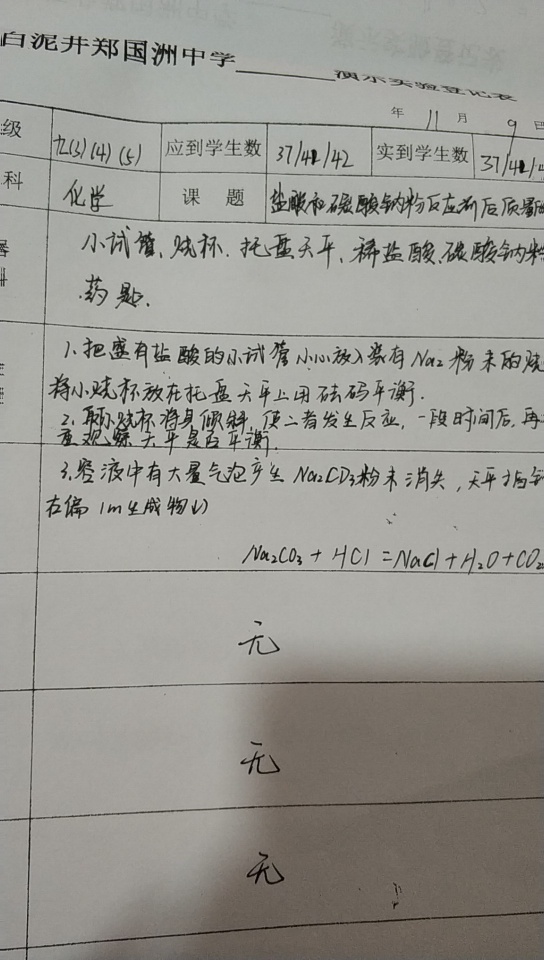 白泥井郑国洲中学______演示实验登记表
年 11 月 9 日
级 九(3)(4)(5) 应到学生数 37/41/42 实到学生数 37/41/4
科 化学 课 题 盐酸和碳酸钠粉反应前后质量
小试管、烧杯、托盘天平、稀盐酸、碳酸钠粉
药匙.
1.把盛有盐酸的小试管小心放入装有Na2粉末的烧
将小烧杯放在托盘天平上用砝码平衡.
2.取小烧杯将其倾斜,使二者发生反应,一段时间后,再
观察天平是否平衡.
3.溶液中有大量气泡产生 Na2CO3粉末消失,天平指针
右偏(m生成物↓)
Na2CO3 + HCl = NaCl + H2O + CO2
无
无
无